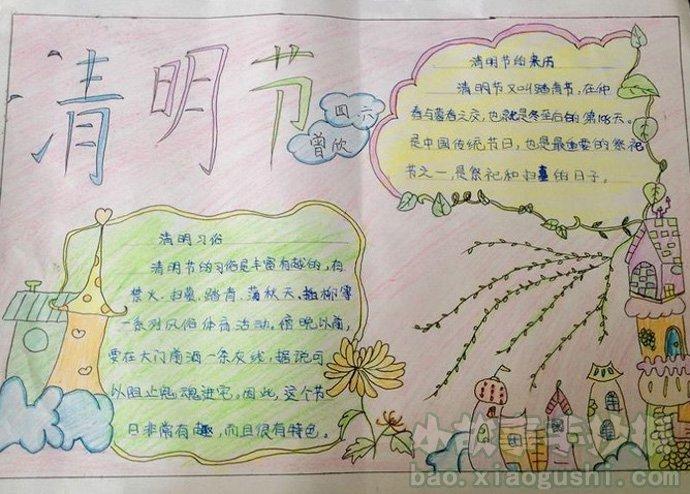 清明节
四六
曾欣
清明节的来历
清明节又叫踏青节,在仲
春与暮春之交,也就是冬至后的第108天。
是中国传统节日,也是最重要的祭祀
节之一,是祭祀和扫墓的日子。
清明习俗
清明节的习俗是丰富有趣的,有
禁火、扫墓、踏青、荡秋天、插柳等
一系列风俗体育活动。傍晚以前,
要在大门前洒一条灰线,据说可
以阻止鬼魂进宅。因此,这个节
日非常有趣,而且很有特色。
小故事手抄报
bao.xiaogushi.com